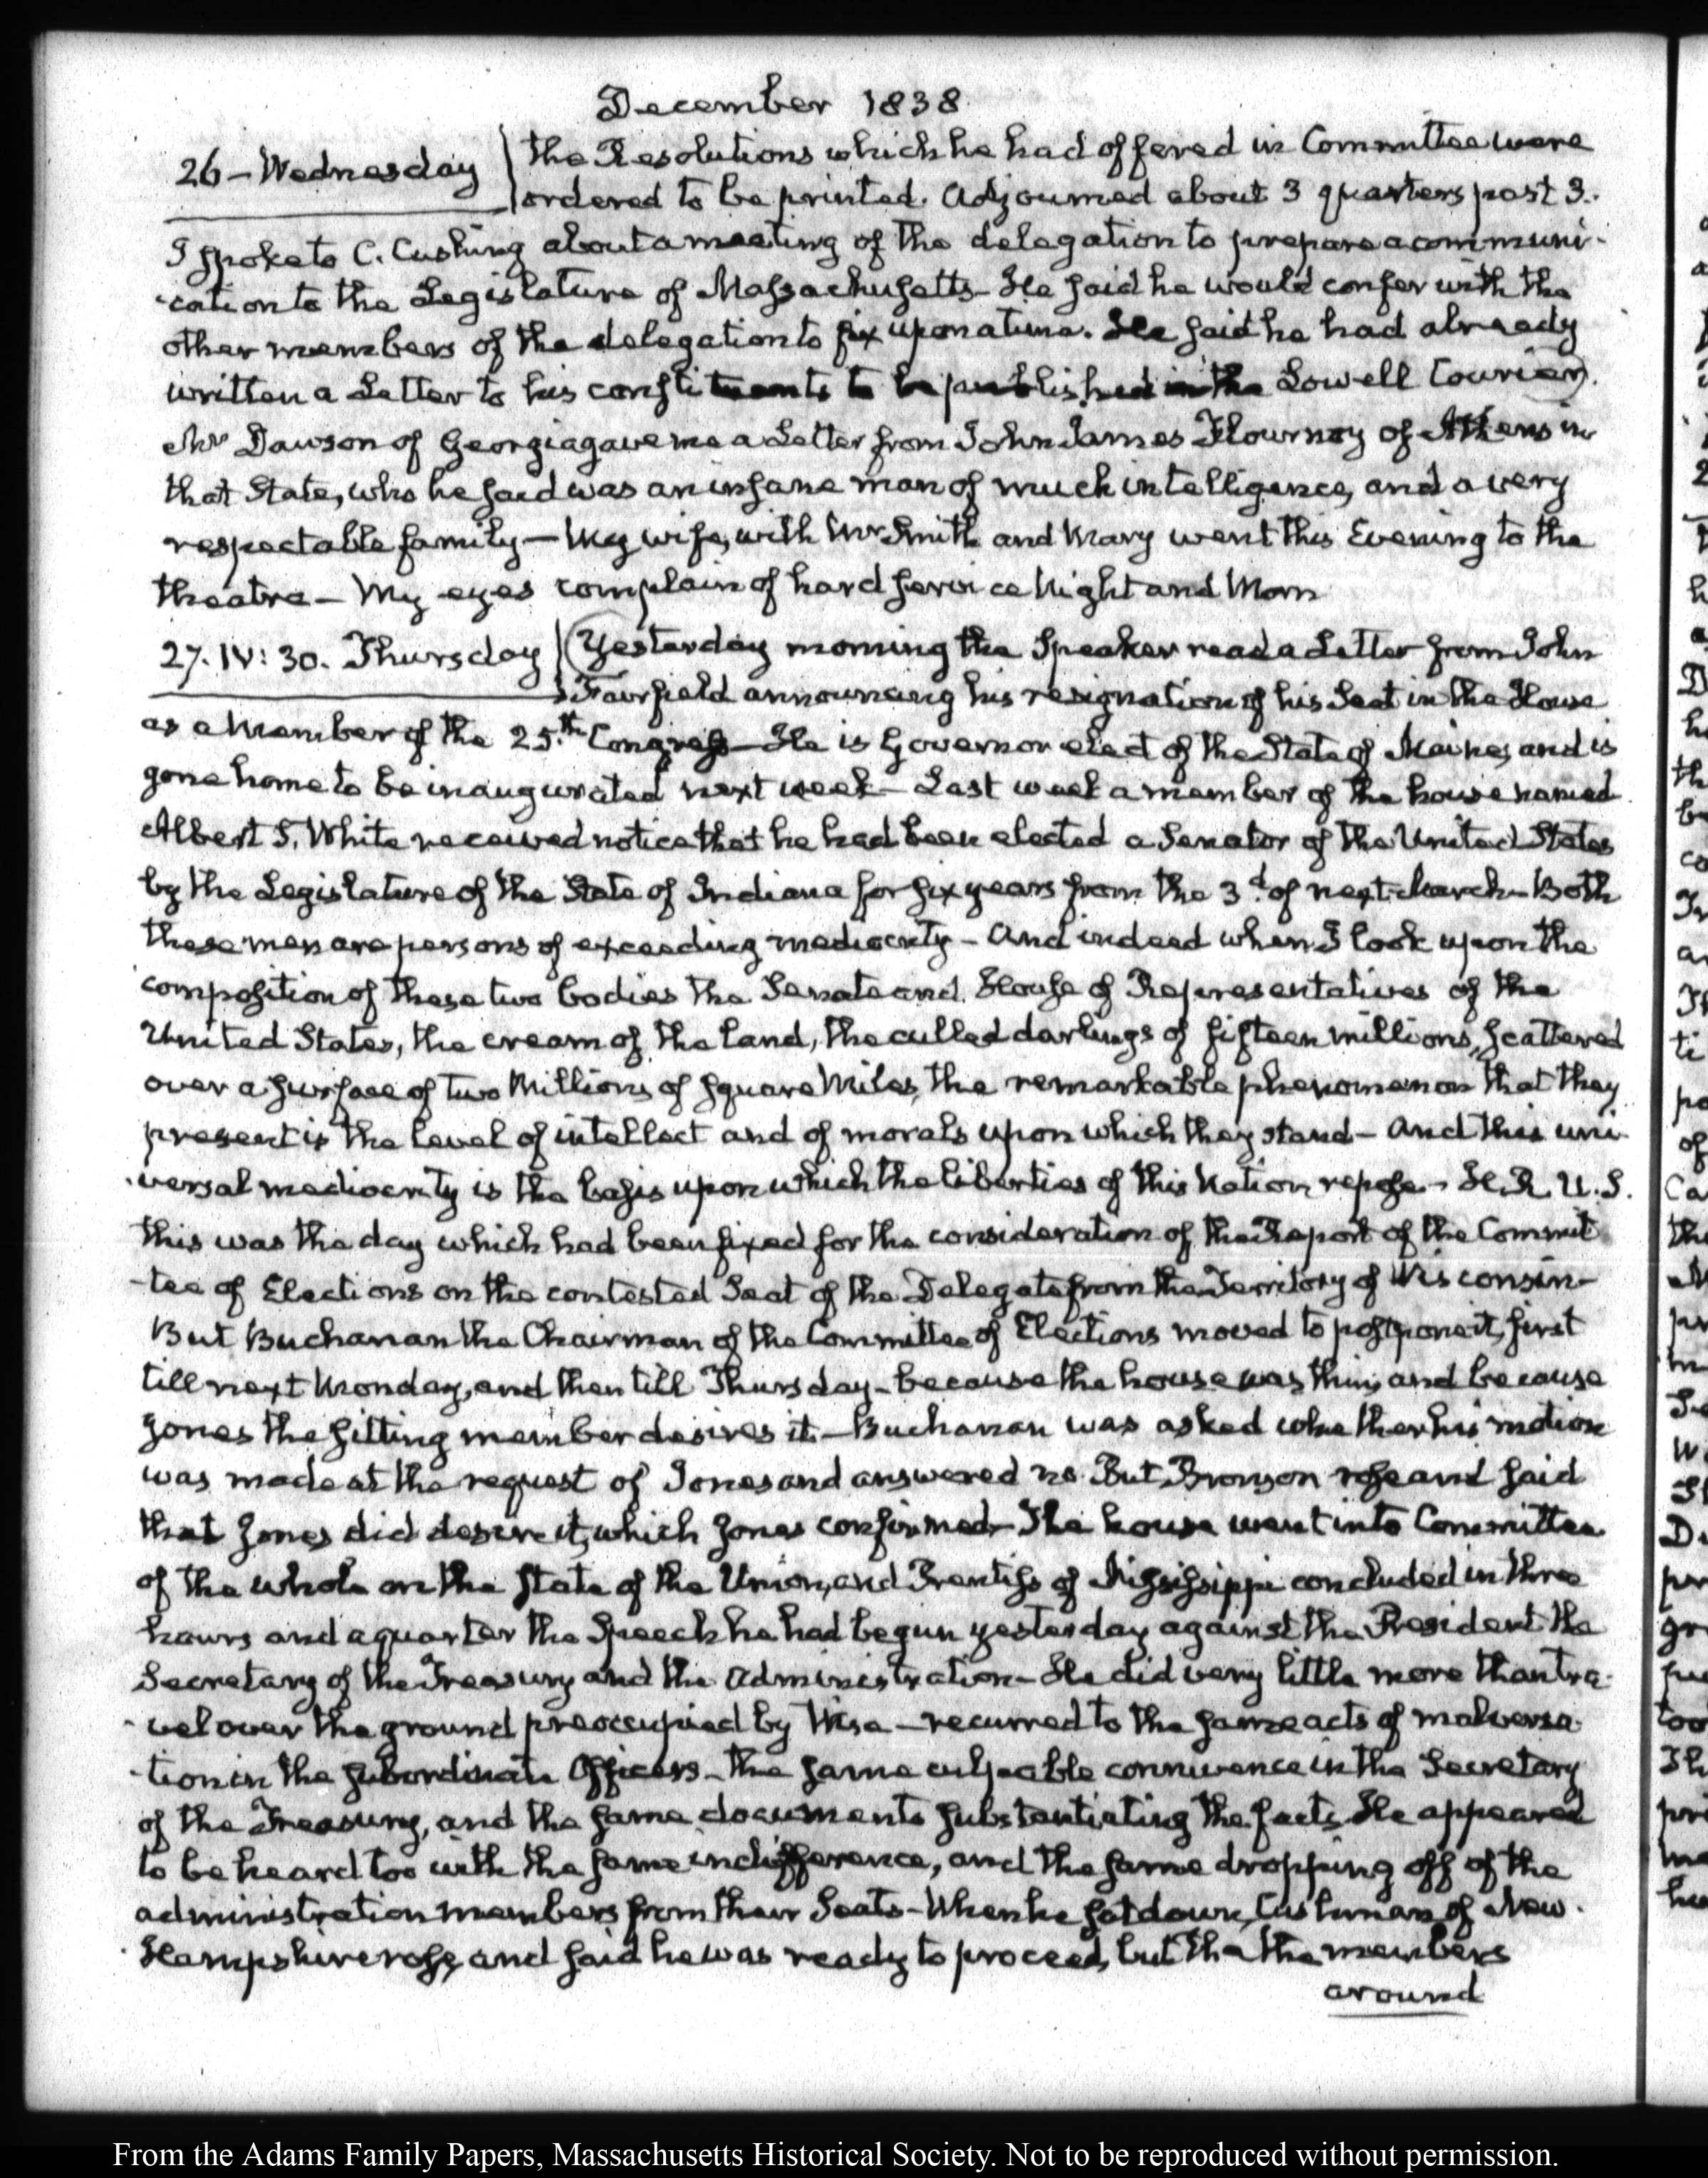 December 1838
26 – Wednesday
the Resolutions which he had offered in Committee were
ordered to be printed. Adjourned about 3 quarters past 3.
I spoke to C. Cushing about a meeting of the delegation to prepare a communi-
-cation to the Legislature of Massachusetts – He said he would confer with the
other members of the delegation to fix upon a time. He said he had already
written a Letter to his constituents to be published in the Lowell Courier.
Mr Dawson of Georgia gave me a Letter from John James Flournoy of Athens in
that State, who he said was an insane man of much intelligence, and a very
respectable family – My wife, with Mrs Smith and Mary went this Evening to the
theatre – My eyes complain of hard service Night and Morn
27. IV: 30. Thursday
Yesterday morning the Speaker read a Letter from John
Fairfield announcing his resignation of his Seat in the House
as a Member of the 25.th Congress – He is Governor elect of the State of Maine, and is
gone home to be inaugurated next week – Last week a member of the house named
Albert S. White received notice that he had been elected a Senator of the United States
by the Legislature of the State of Indiana for six years from the 3.d of next March – Both
these men are persons of exceeding mediocrity – And indeed when I look upon the
composition of these two bodies the Senate and House of Representatives of the
United States, the cream of the land, the culled darlings of fifteen millions, scattered
over a surface of two Millions of square Miles, the remarkable phenomenon that they
present is the level of intellect and of morals upon which they stand – And this uni-
-versal mediocrity is the basis upon which the liberties of this Nation repose – H.R. U.S.
this was the day which had been fixed for the consideration of the Report of the Commit
-tee of Elections on the contested Seat of the Delegate from the Territory of Wisconsin –
But Buchanan the Chairman of the Committee of Elections moved to postpone it, first
till next Monday, and then till Thursday – because the house was thin, and because
Jones the sitting member desires it – Buchanan was asked whether his motion
was made at the request of Jones and answered no. But Bronson rose and said
that Jones did desire it, which Jones confirmed – The house went into Committee
of the whole on the state of the Union, and Prentiss of Mississippi concluded in three
hours and a quarter the Speech he had begun yesterday against the President the
Secretary of the Treasury and the Administration – He did very little more than tra-
-vel over the ground preoccupied by Wise – recurred to the same acts of malversa-
-tion in the subordinate Officers – the same culpable connivence in the Secretary
of the Treasury, and the same documents substantiating the facts. He appeared
to be heard too with the same indifference, and the same dropping off of the
administration members from their Seats – When he sat down, Cushman of New-
Hampshire rose, and said he was ready to proceed, but tha the members
around
From the Adams Family Papers, Massachusetts Historical Society. Not to be reproduced without permission.